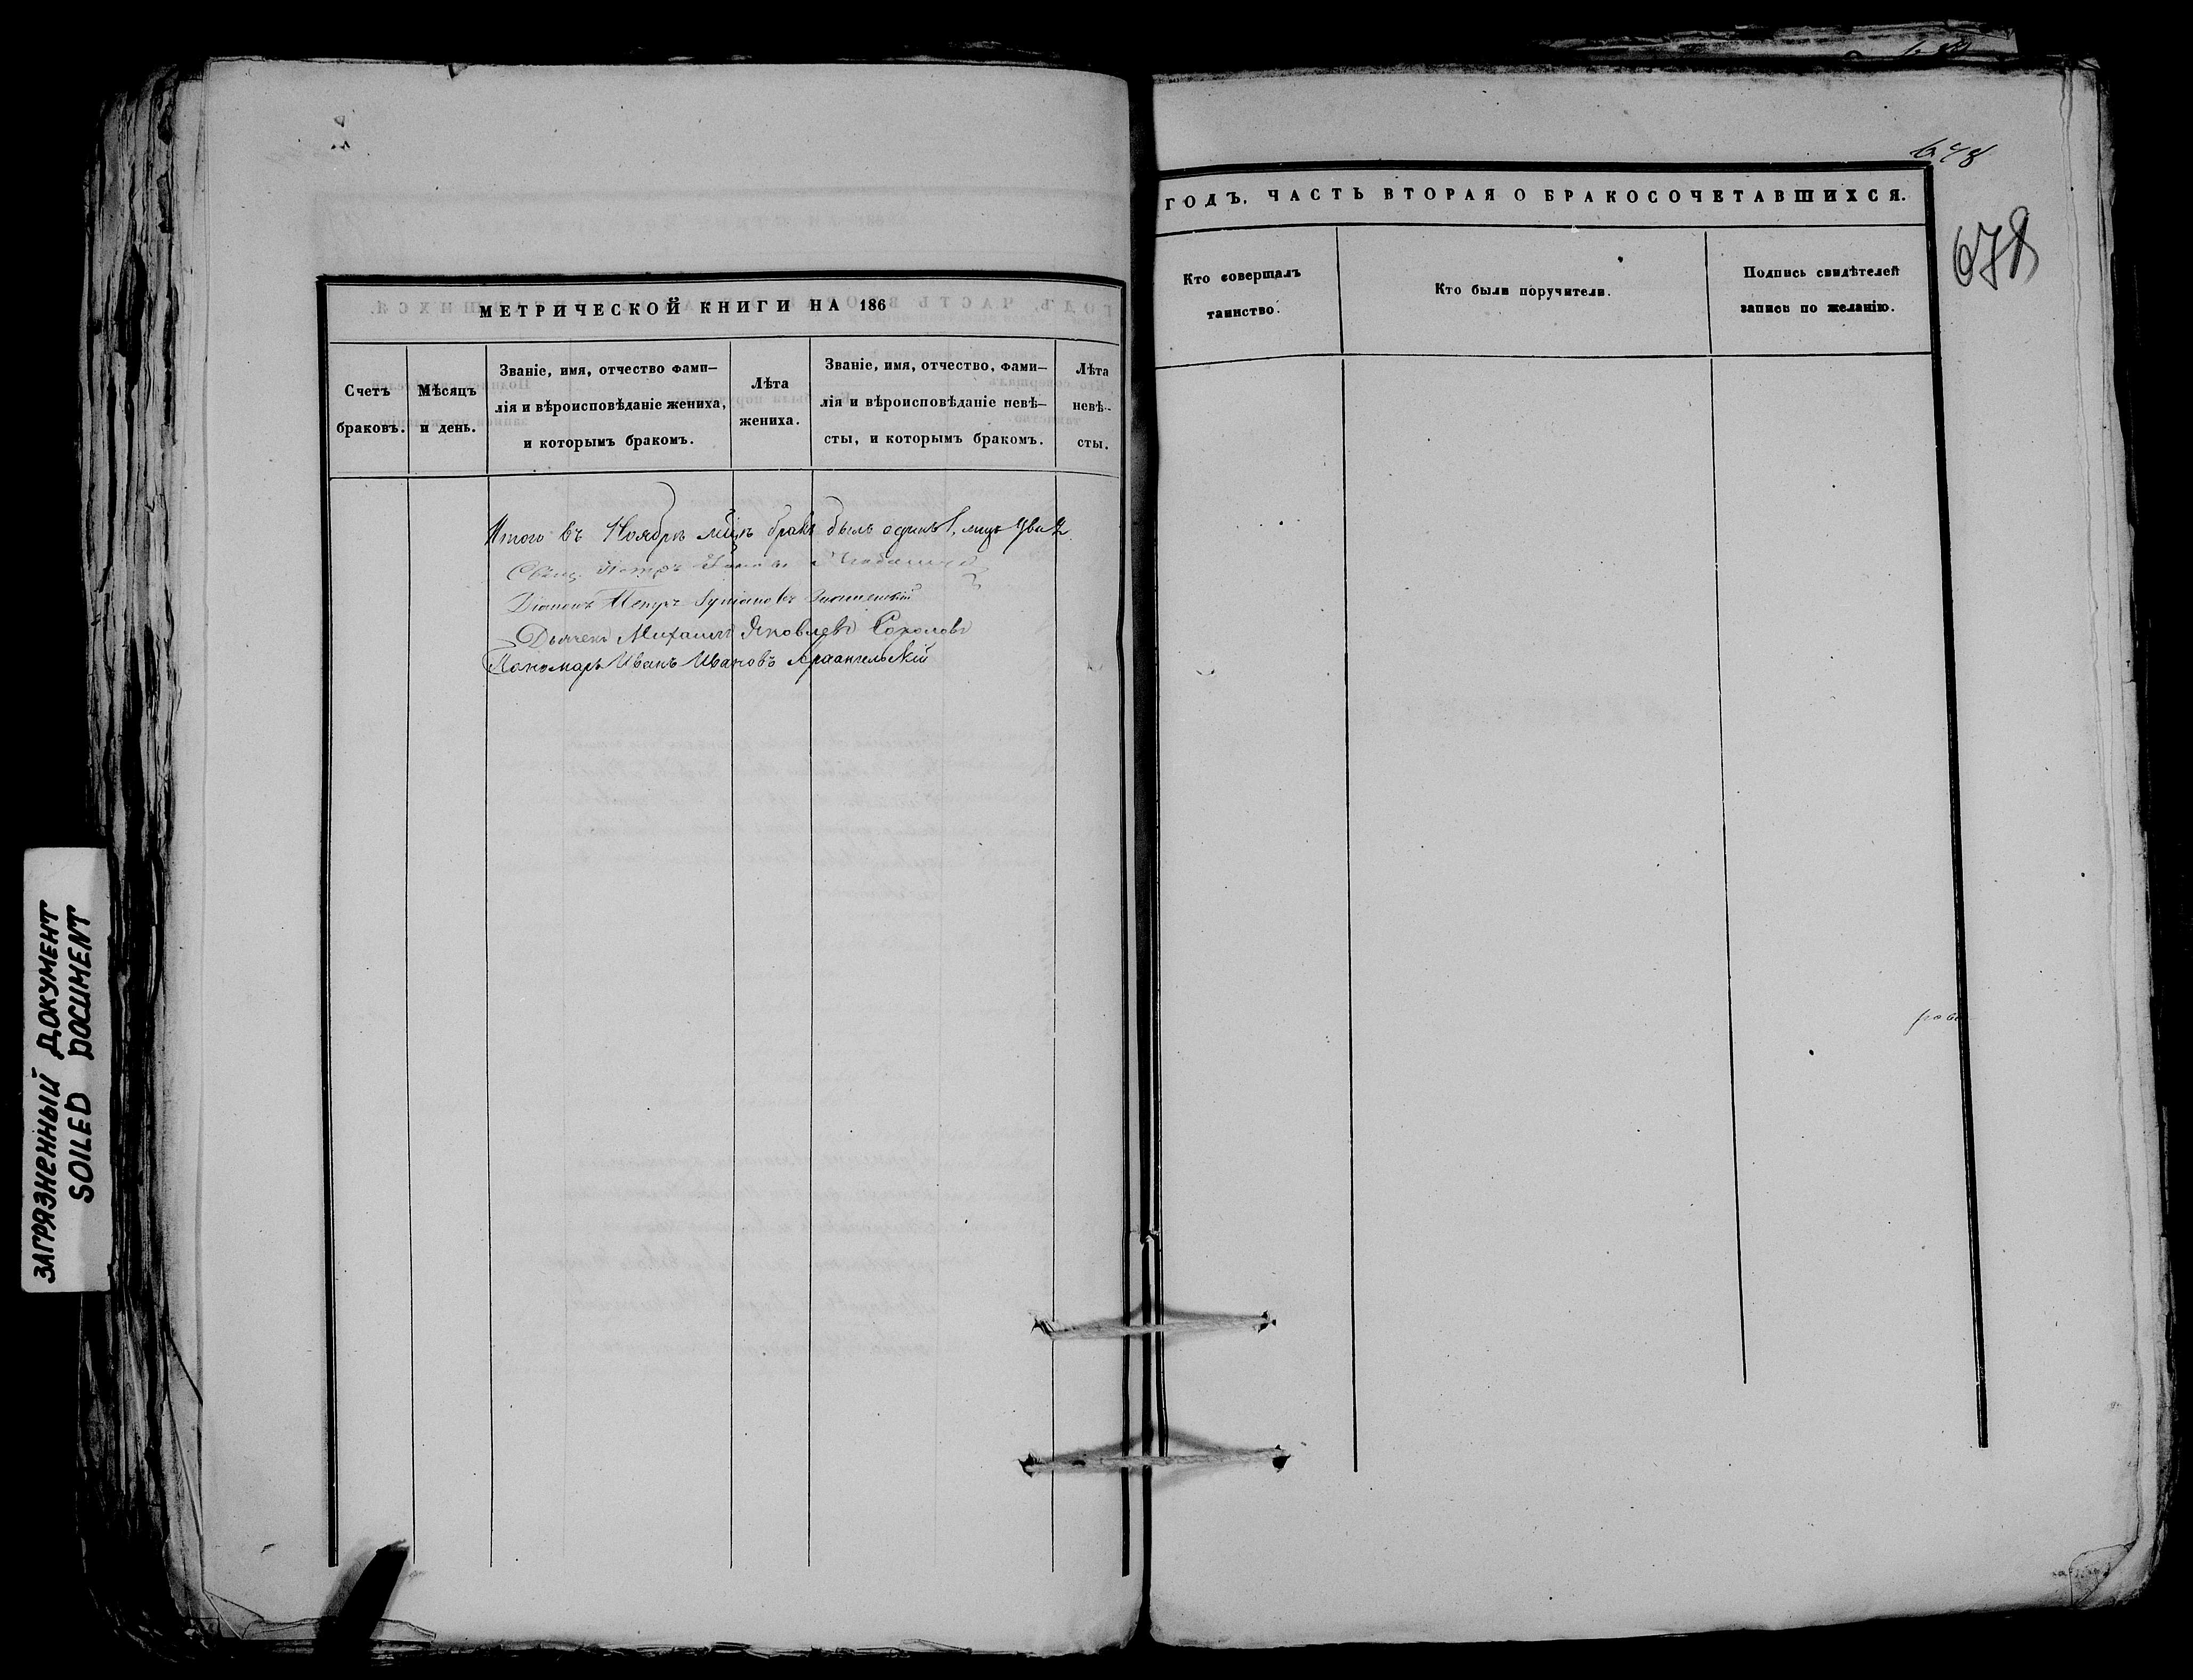 648
678
МЕТРИЧЕСКОЙ КНИГИ НА 186
Счетъ браковъ.
Мѣсяцъ и день.
Званіе, имя, отчество фами-
лія и вѣроисповѣданіе жениха,
и которымъ бракомъ.
Лѣта жениха.
Званіе, имя, отчество, фами-
лія и вѣроисповѣданіе невѣ-
сты, и которымъ бракомъ.
Лѣта
невѣ-
сты.
Итого въ Ноябрѣ мѣцѣ бракъ былъ одинъ 1, лицъ два 2
Свящ. Петръ
Діаконъ Петръ
Дьячекъ Михаилъ Яковлевъ Соколовъ
Пономарь Иванъ Ивановъ Архангельскій
ГОДЪ, ЧАСТЬ ВТОРАЯ О БРАКОСОЧЕТАВШИХСЯ.
Кто совершалъ
таинство.
Кто были поручители.
Подпись свидѣтелей
записи по желанію.
ЗАГРЯЗНЕННЫЙ ДОКУМЕНТ
SOILED DOCUMENT